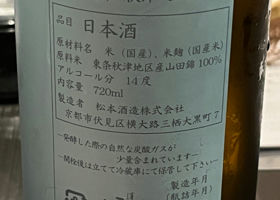 品目 日本酒
原材料名 米（国産）、米麹（国産米）
原料米 東条秋津地区産山田錦100%
アルコール分 14度
内容量 720ml
製造者 松本酒造株式会社
京都市伏見区横大路三栖大黒町7
―発酵した際の自然な炭酸ガスが
少量含まれています―
―開栓後は立てて冷蔵庫にて保管して下さい―
製造年月
（瓶詰年月）